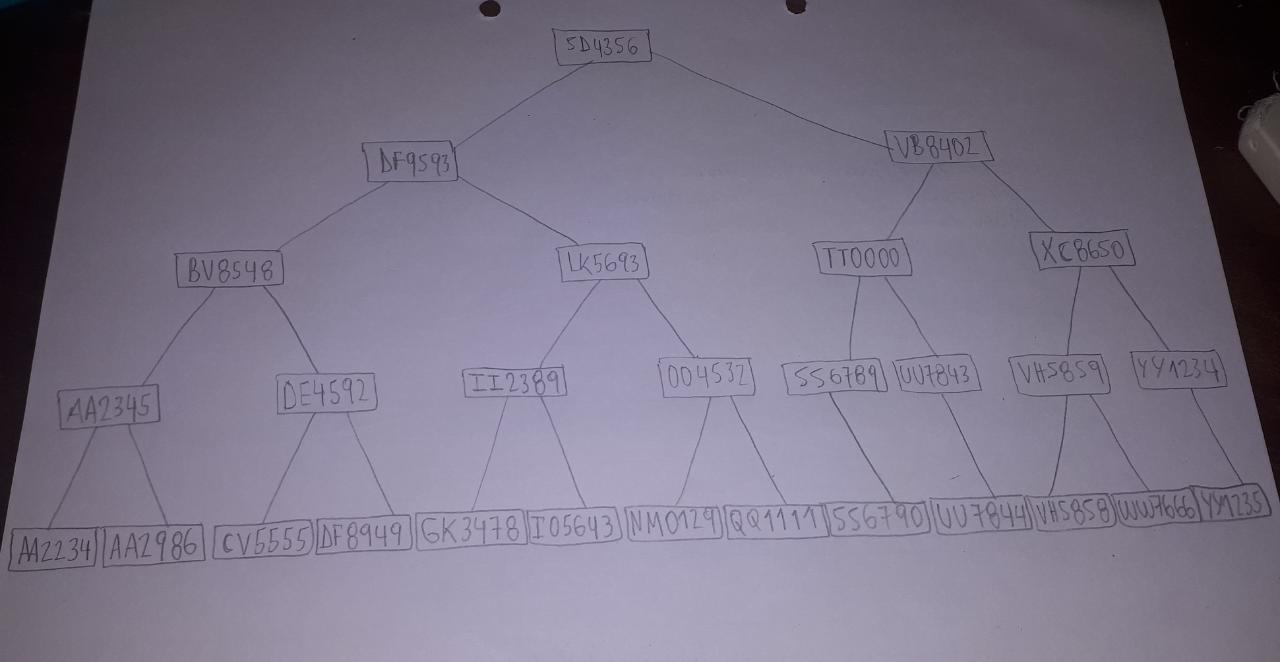 SD4356
DF9593 VB8402
BV8548 LK5693 TT0000 XC8650
AA2345 DE4592 II2389 OO4532 SS6789 UU7843 VH5859 YY1234
AA2234 AA2986 CV5555 DF8949 GK3478 IO5643 NM0129 QQ1111 SS6790 UU7844 VH5858 WW7666 YY1235